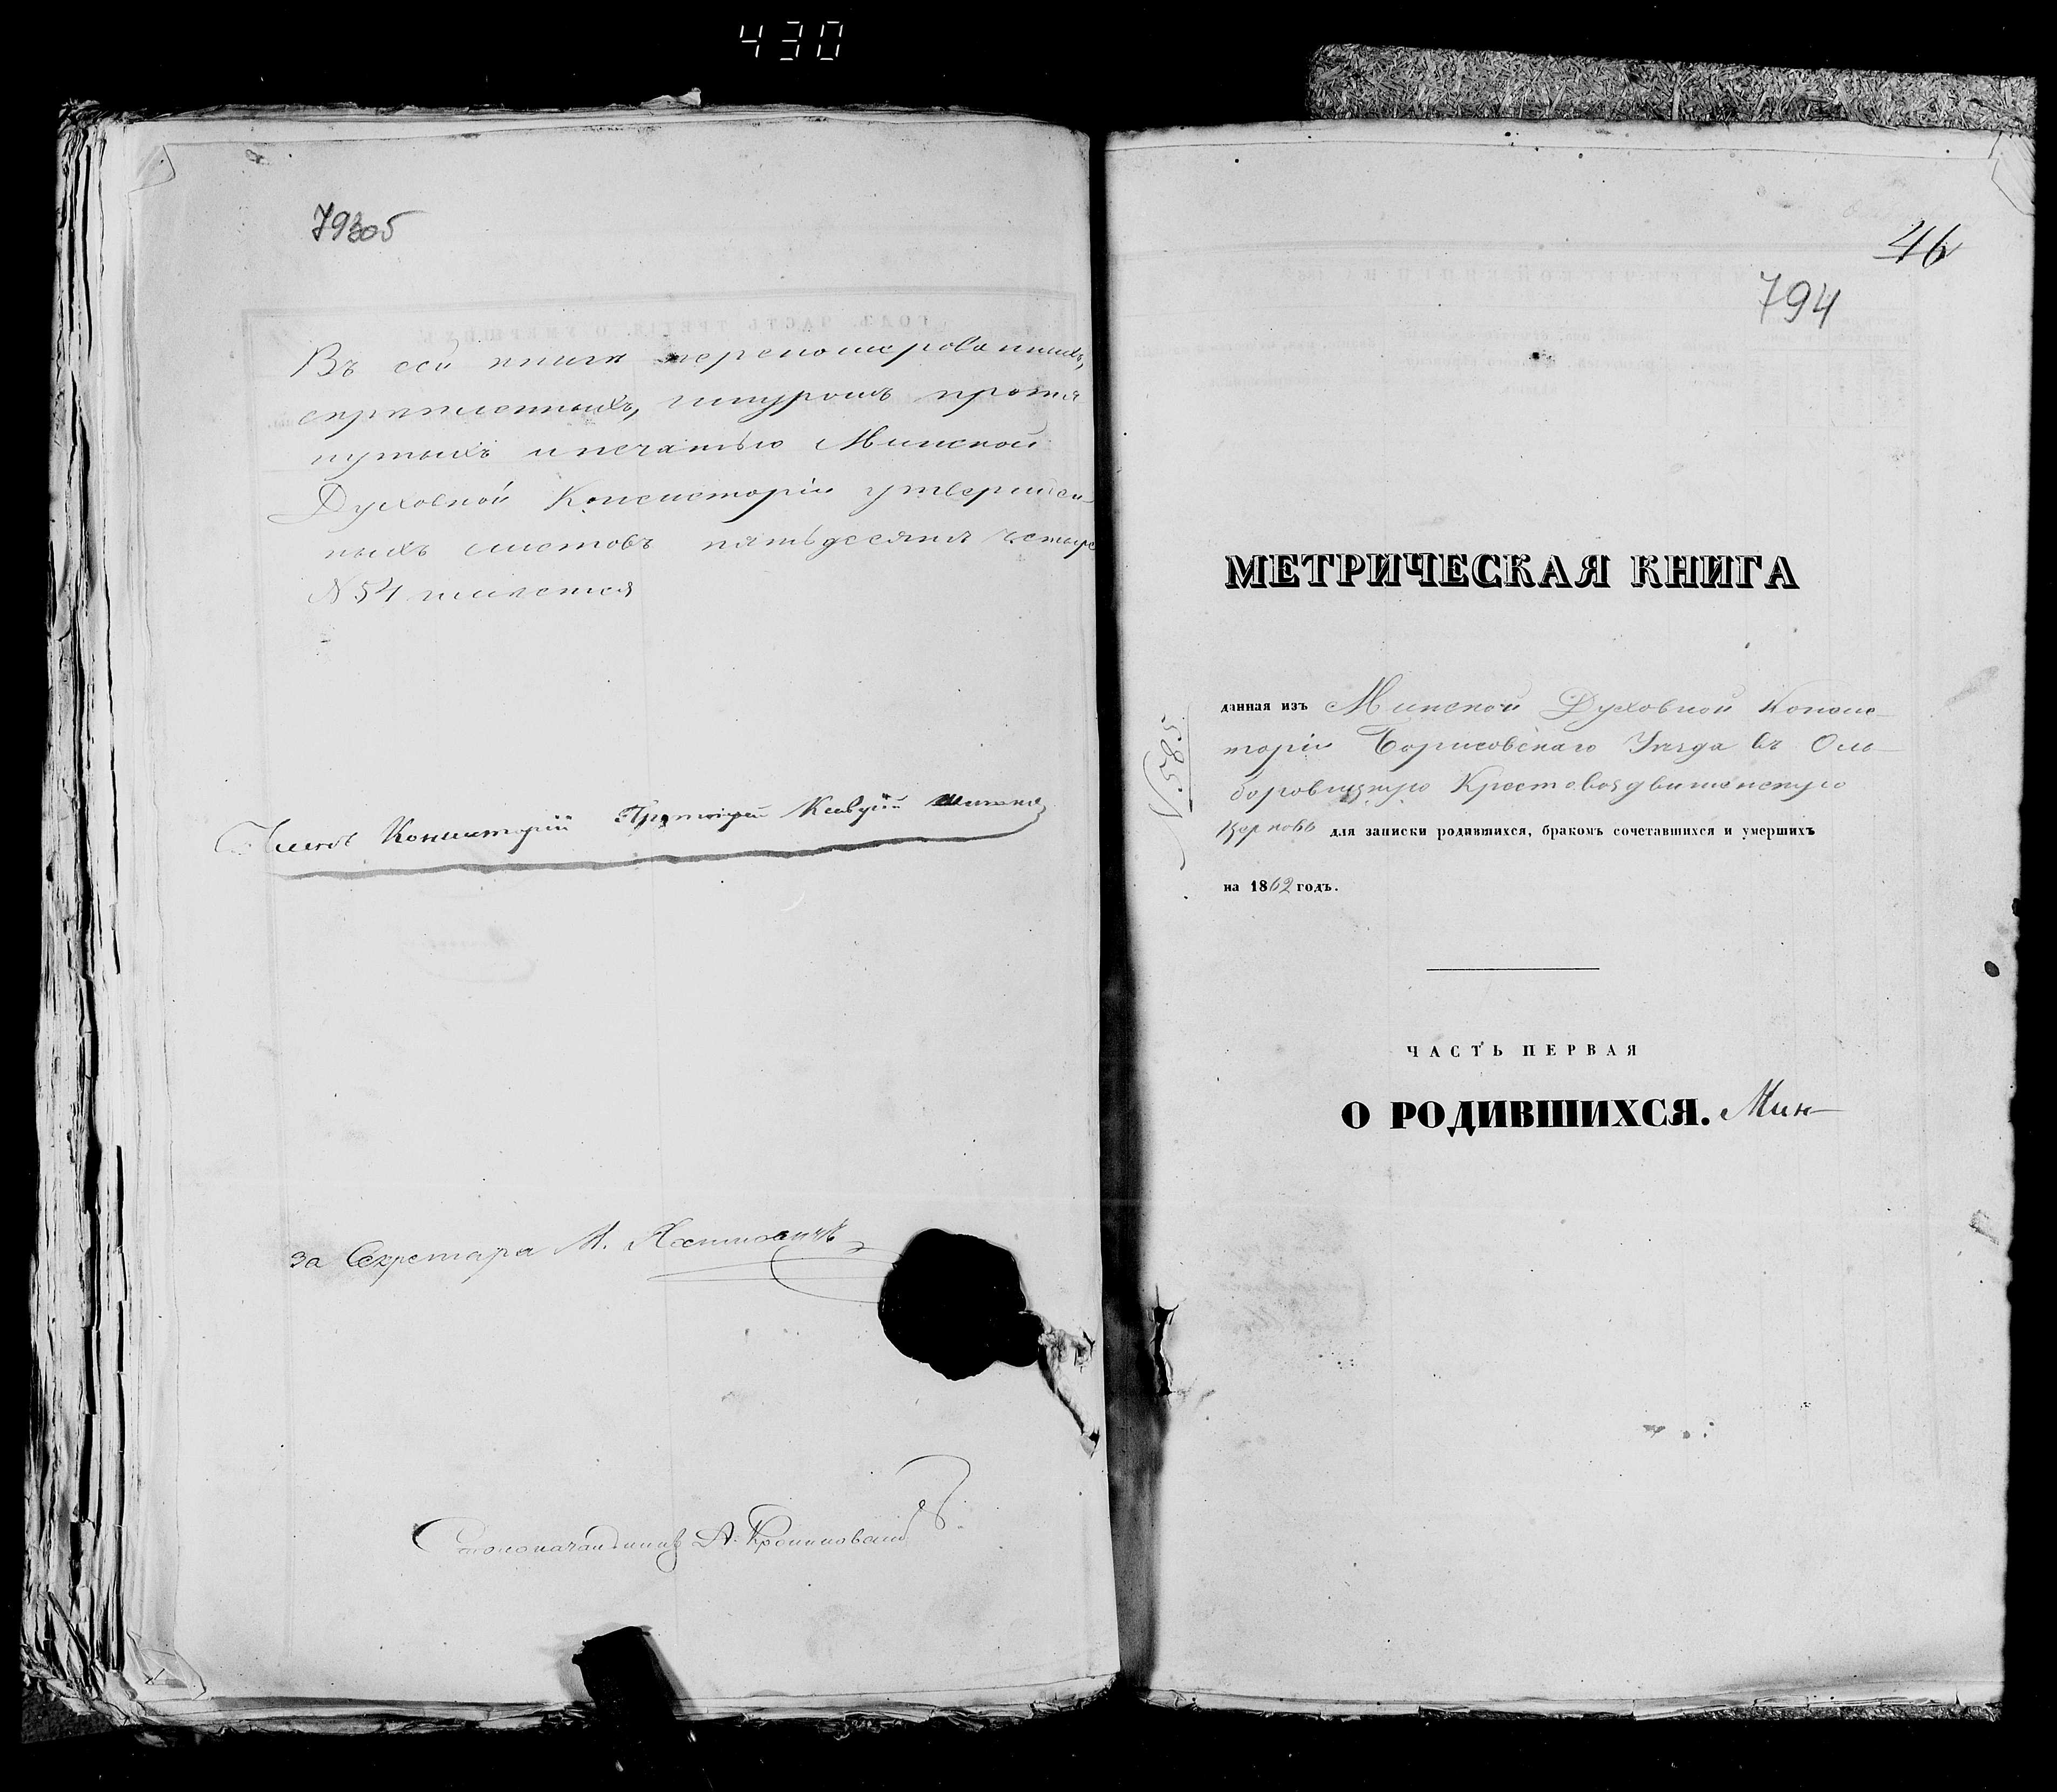 430
79305
Въ сей книгѣ перенумерованныхъ,
скрѣпленныхъ, шнуромъ протя
нутыхъ и печатью Минской
Духовной Консисторіи утвержден
ныхъ листовъ пятьдесятъ четыре
№ 54 имѣется
Членъ Консисторіи Протоіерей
за Секретаря М.
Столоначальникъ А.
46
794
585
МЕТРИЧЕСКАЯ КНИГА
данная изъ Минской Духовной Консис-
торіи Борисовскаго Уѣзда въ
Крестовоздвиженскую
Церковь для записки родившихся, бракомъ сочетавшихся и умершихъ
на 1862 годъ.
ЧАСТЬ ПЕРВАЯ
О РОДИВШИХСЯ. Мин